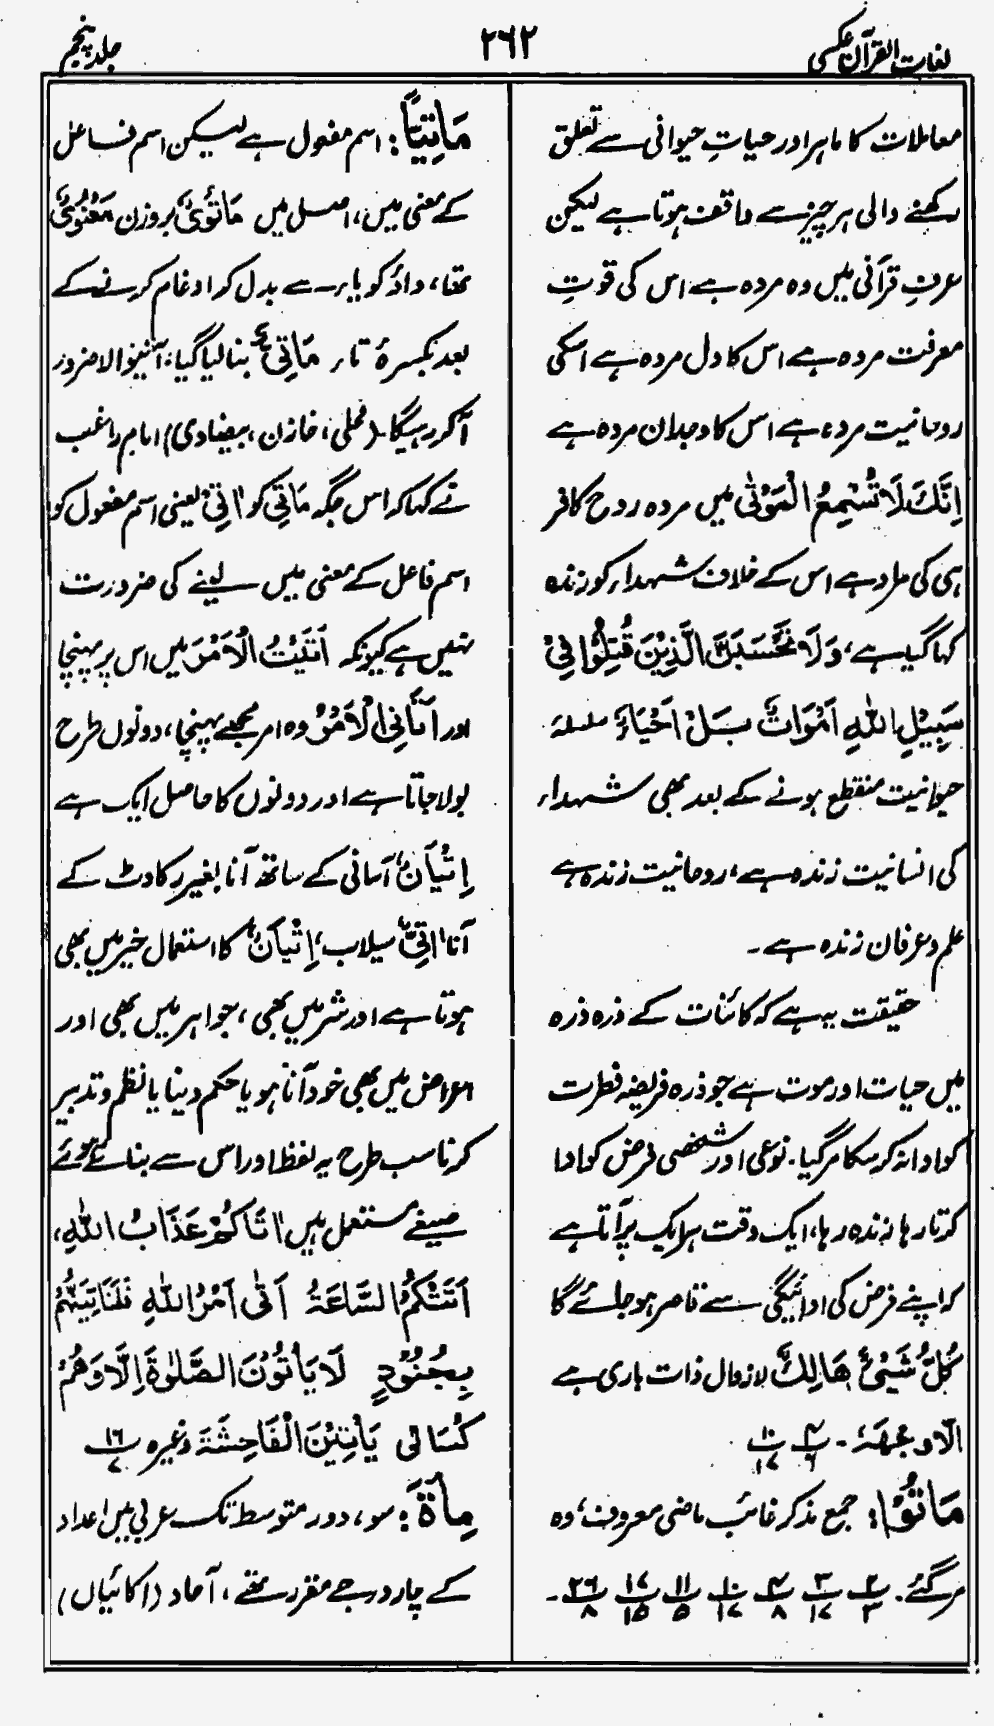 لغات القرآن عکسی
۲۶۲
جلد پنجم
معاملات کا ماہر اور حیاتِ حیوانی سے تعلق
رکھنے والی ہر چیز سے واقف ہوتا ہے لیکن
عرفِ قرآنی میں وہ مردہ ہے اس کی قوتِ
معرفت مردہ ہے اس کا دل مردہ ہے اسکی
روحانیت مردہ ہے اس کا وجدان مردہ ہے
اِنَّكَ لَا تُسْمِعُ الْمَوْتٰى میں مردہ روح کافر
ہی کی مراد ہے اس کے خلاف شہداء کو زندہ
کہا گیا ہے، وَلَا تَحْسَبَنَّ الَّذِيْنَ قُتِلُوْا فِيْ
سَبِيْلِ اللّٰهِ اَمْوَاتًا بَلْ اَحْيَاءٌ سلسلۂ
حیوانیت منقطع ہونے کے بعد بھی شہداء
کی انسانیت زندہ ہے، روحانیت زندہ ہے
علم وعرفان زندہ ہے۔
حقیقت یہ ہے کہ کائنات کے ذرہ ذرہ
میں حیات اور موت ہے جو ذرہ فریضۂ فطرت
کو ادا نہ کر سکا مرگیا۔ نوعی اور شخصی فرض کو ادا
کرتا رہا زندہ رہا، ایک وقت ہر ایک پر آتا ہے
کہ اپنے فرض کی ادائیگی سے قاصر ہو جائے گا
كُلُّ شَيْءٍ هَالِكٌ لازوال ذات باری ہے
الّا وجهَهٗ ۔ ۴/۶ ۱۰/۱۷
مَاتُوْا: جمع مذکر غائب ماضی معروف، وہ
مرگئے۔ ۲/۳ ۳/۱۷ ۴/۸ ۱۰/۱۷ ۱۱/۵ ۱۷/۱۵ ۲۶/۸ ۔
مَأتِيًّا: اسم مفعول ہے لیکن اسم فاعل
کے معنی میں، اصل میں مَأتُوْیٌ بروزن مَعْنُوْیٌ
تھا، واؤ کو یاء سے بدل کر ادغام کرنے کے
بعد بکسرۂ تاء مَأتِیٌّ بنا لیا گیا، آنیوالا ضرور
آکر رہیگا۔ (محلی، خازن، بیضاوی) امام راغب
نے کہا کہ اس جگہ مَأتِی کو اٰتِیْ یعنی اسم مفعول کو
اسم فاعل کے معنی میں لینے کی ضرورت
نہیں ہے کیونکہ اَتَيْتُ الْاَمْرَ میں اس پر پہنچا
اور اَتَانِی الْاَمْرُ وہ امر مجھے پہنچا، دونوں طرح
بولا جاتا ہے اور دونوں کا حاصل ایک ہے
اِتْیَانٌ، آسانی کے ساتھ آنا بغیر رکاوٹ کے
آنا، اَتِیٌّ سیلاب، اِتْیَانٌ کا استعمال خیر میں بھی
ہوتا ہے اور شر میں بھی، جواہر میں بھی اور
اعراض میں بھی خود آنا ہو یا حکم دینا یا نظم وتدبیر
کرنا سب طرح یہ لفظ اور اس سے بنائے ہوئے
صیغے مستعمل ہیں اَتَاكُمْ عَذَابُ اللّٰهِ،
اَتَتْكُمُ السَّاعَةُ اَتٰى اَمْرُ اللّٰهِ فَلَنَأتِيَنَّهُمْ
بِجُنُوْدٍ لَا يَأتُوْنَ الصَّلٰوةَ اِلَّا وَهُمْ
كُسَالٰى يَأتِيْنَ الْفَاحِشَةَ وغیرہ ۱۶/۷
مِأَةٌ: سو، دور متوسط تک عربی میں اعداد
کے چار درجے مقرر تھے، آحاد (اکائیاں)